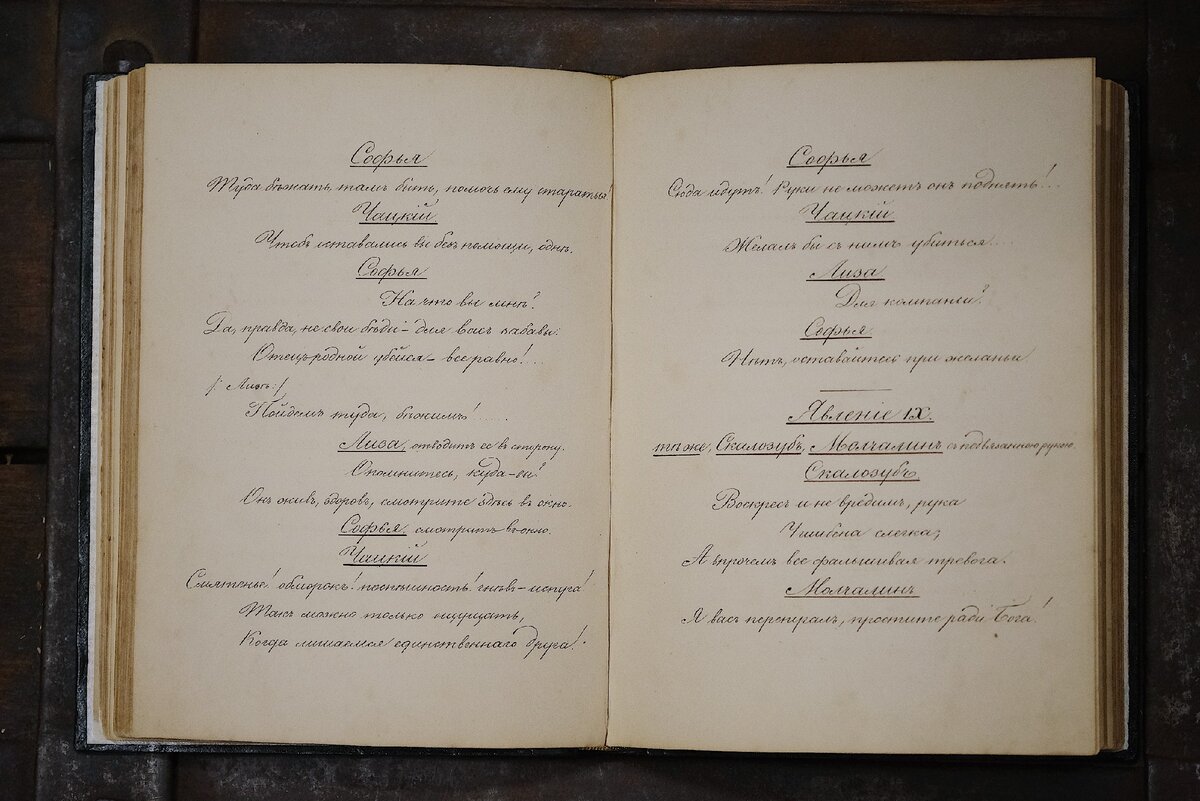 Софья
Туда бѣжать, тамъ быть, помочь ему стараться!
Чацкій.
Чтобъ оставались вы безъ помощи, однѣ.
Софья
На что вы мнѣ?
Да, правда, не свои бѣды – для васъ забавы.
Отецъ родной убейся – все равно!...
/: Лизѣ :/
Пойдемъ туда, бѣжимъ!.....
Лиза, отводитъ ее въ сторону.
Опомнитесь, куда-вы?
Онъ живъ, здоровъ, смотрите здѣсь въ окно.
Софья, смотритъ въ окно.
Чацкій
Смятенье! обморокъ! поспѣшность! гнѣвъ – испуга!
Такъ можно только ощущать,
Когда лишаемся единственнаго друга!
Софья
Сюда идутъ! Руки не можетъ онъ поднять!...
Чацкій
Желалъ бы съ нимъ убиться....
Лиза
Для компаніи?
Софья
Нѣтъ, оставайтесь при желаньи
Явленіе IX.
тѣ же, Скалозубъ, Молчалинъ съ подвязанною рукою.
Скалозубъ
Воскресъ и не вредимъ, рука
Ушибена слегка,
А впрочемъ все фальшивая тревога.
Молчалинъ
Я васъ перепугалъ, простите ради Бога!